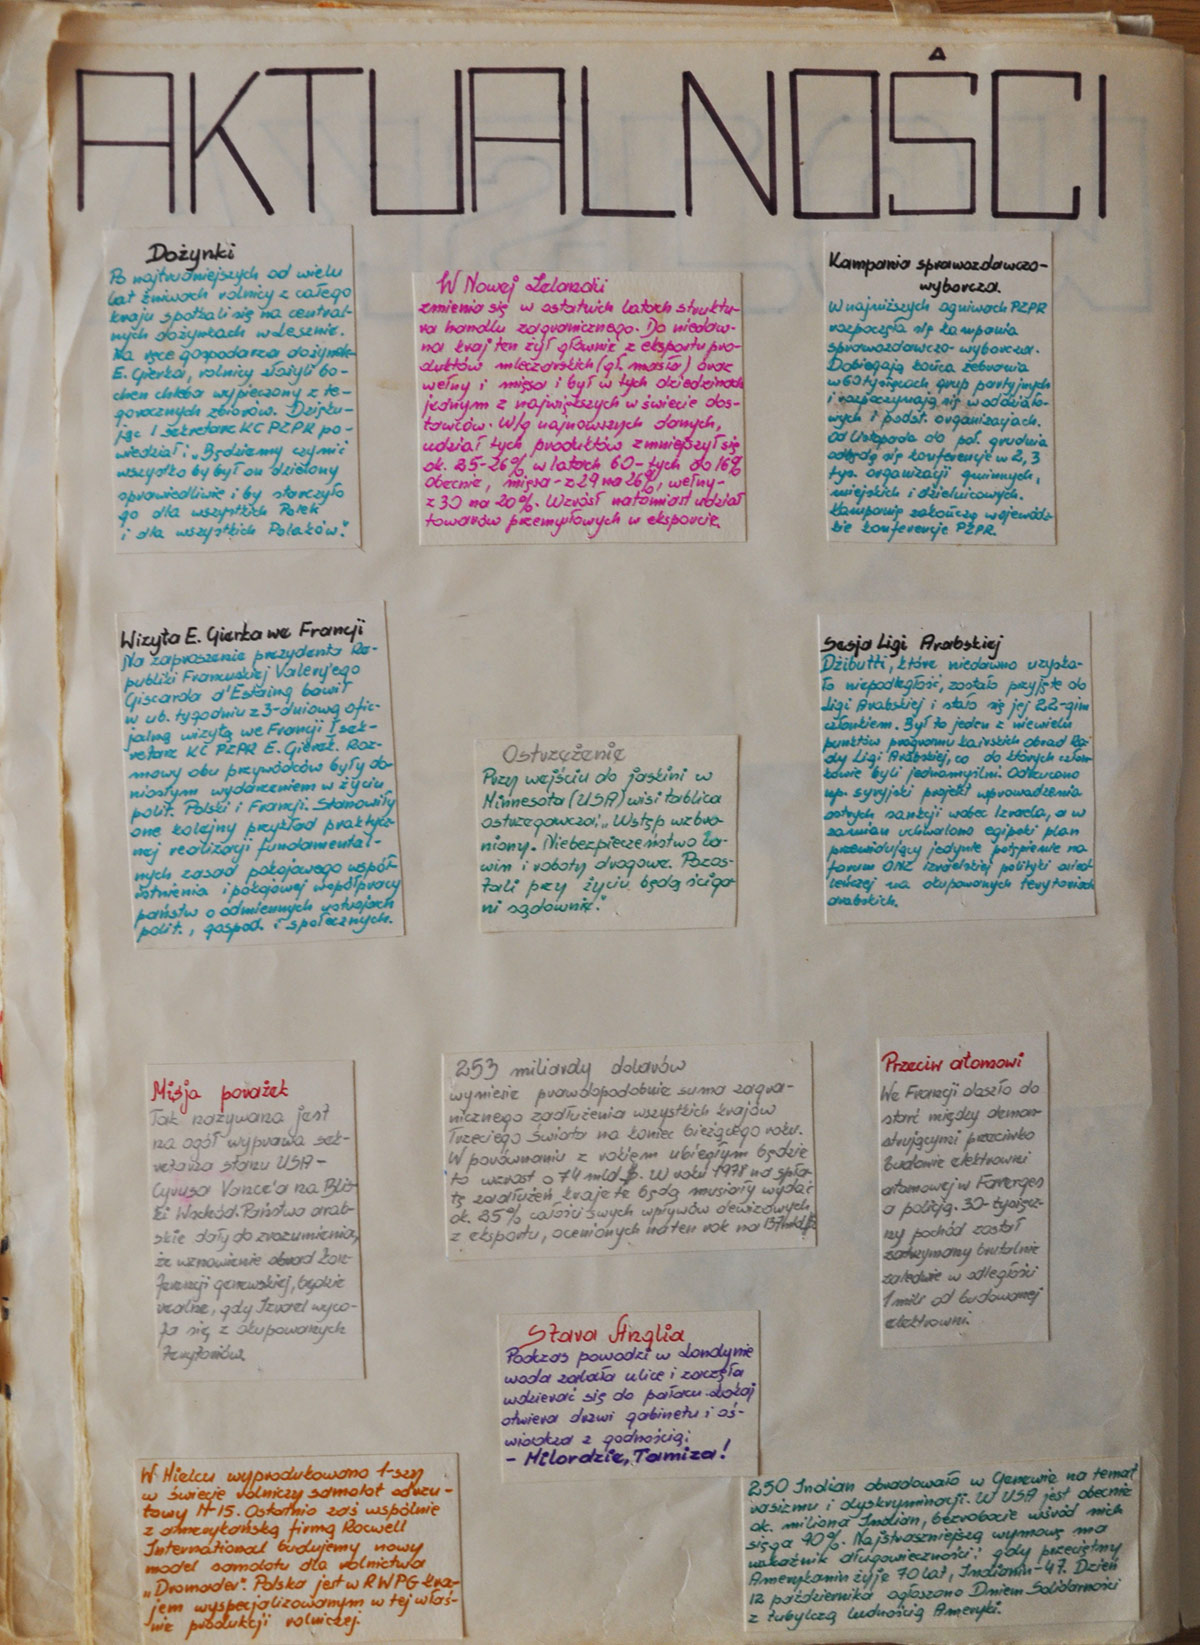 AKTUALNOŚCI
Dożynki
Po najtrudniejszych od wielu
lat żniwach rolnicy z całego
kraju spotkali się na central-
nych dożynkach w Lesznie.
Na ręce gospodarza dożynek
E. Gierka, rolnicy złożyli bo-
chen chleba wypieczony z te-
gorocznych zbiorów. Dzięku-
jąc I sekretarz KC PZPR po-
wiedział: „Będziemy czynić
wszystko by był on dzielony
sprawiedliwie i by starczyło
go dla wszystkich Polek
i dla wszystkich Polaków."
W Nowej Zelandii
zmienia się w ostatnich latach struktu-
ra handlu zagranicznego. Do niedaw-
na kraj ten żył głównie z eksportu pro-
duktów mleczarskich (gł. masła) oraz
wełny i mięsa i był w tych dziedzinach
jednym z największych w świecie dos-
tawców. W/g najnowszych danych,
udział tych produktów zmniejszył się
ok. 25-26% w latach 60-tych do 16%
obecnie, mięsa - z 29 na 26%, wełny-
z 30 na 20%. Wzrósł natomiast udział
towarów przemysłowych w eksporcie.
Kampania sprawozdawczo-
wyborcza.
W najniższych ogniwach PZPR
rozpoczęła się kampania
sprawozdawczo-wyborcza.
Dobiegają końca zebrania
w 60 tysiącach grup partyjnych
i rozpoczynają się w oddziało-
wych i podst. organizacjach.
Od listopada do poł. grudnia
odbędą się konferencje w 2,3
tys. organizacji gminnych,
miejskich i dzielnicowych.
Kampanię zakończą wojewódz-
kie konferencje PZPR.
Wizyta E. Gierka we Francji
Na zaproszenie prezydenta Re-
publiki Francuskiej Valery'ego
Giscarda d'Estaing bawił
w ub. tygodniu z 3-dniową ofic-
jalną wizytą we Francji I sek-
retarz KC PZPR E. Gierek. Roz-
mowy obu przywódców były do-
niosłym wydarzeniem w życiu
polit. Polski i Francji. Stanowiły
one kolejny przykład praktycz-
nej realizacji fundamental-
nych zasad pokojowego współ-
istnienia i pokojowej współpracy
państw o odmiennych ustrojach
polit., gospod. i społecznych.
Ostrzeżenie
Przy wejściu do jaskini w
Minnesota (USA) wisi tablica
ostrzegawcza: „Wstęp wzbro-
niony. Niebezpieczeństwo la-
win i roboty drogowe. Pozos-
tali przy życiu będą ściga-
ni sądownie."
Sesja Ligi Arabskiej
Dżibutti, które niedawno uzyska-
ło niepodległość, zostało przyjęte do
Ligi Arabskiej i stało się jej 22-gim
członkiem. Był to jeden z niewielu
punktów programu kairskich obrad Ra-
dy Ligi Arabskiej, co do których człon-
kowie byli jednomyślni. Odrzucono
np. syryjski projekt wprowadzenia
ostrych sankcji wobec Izraela, a w
zamian uchwalono egipski plan
przewidujący jedynie potępienie na
forum ONZ izraelskiej polityki osied-
leńczej na okupowanych terytoriach
arabskich.
Misja porażek
Tak nazywana jest
na ogół wyprawa sek-
retarza stanu USA -
Cyrusa Vance'a na Blis-
ki Wschód. Państwa arab-
skie dały do zrozumienia,
że wznowienie obrad kon-
ferencji genewskiej, będzie
realne, gdy Izrael wyco-
fa się z okupowanych
terytoriów.
253 miliardy dolarów
wyniesie prawdopodobnie suma zagra-
nicznego zadłużenia wszystkich krajów
Trzeciego Świata na koniec bieżącego roku.
W porównaniu z rokiem ubiegłym będzie
to wzrost o 74 mld $. W roku 1978 na spła-
tę zadłużeń kraje te będą musiały wydać
ok. 25% całości swych wpływów dewizowych
z eksportu, ocenionych na ten rok na 157 mld $
Przeciw atomowi
We Francji doszło do
starć między demon-
strującymi przeciwko
budowie elektrowni
atomowej w Faverges
a policją. 30-tysięcz-
ny pochód został
zatrzymany brutalnie
zaledwie w odległości
1 mili od budowanej
elektrowni.
Stara Anglia
Podczas powodzi w Londynie
woda zalała ulice i zaczęła
wdzierać się do pałacu. Lokaj
otwiera drzwi gabinetu i oś-
wiadcza z godnością:
- Milordzie, Tamiza!
W Mielcu wyprodukowano 1-szy
w świecie rolniczy samolot odrzu-
towy M-15. Ostatnio zaś wspólnie
z amerykańską firmą Rocwell
International budujemy nowy
model samolotu dla rolnictwa
„Dromader". Polska jest w RWPG kra-
jem wyspecjalizowanym w tej właś-
nie produkcji rolniczej.
250 Indian obradowało w Genewie na temat
rasizmu i dyskryminacji. W USA jest obecnie
ok. miliona Indian, bezrobocie wśród nich
sięga 40%. Najstraszniejszą wymowę ma
wskaźnik długowieczności: gdy przeciętny
Amerykanin żyje 70 lat, Indianin - 47. Dzień
12 października ogłoszono Dniem Solidarności
z tubylczą ludnością Ameryki.